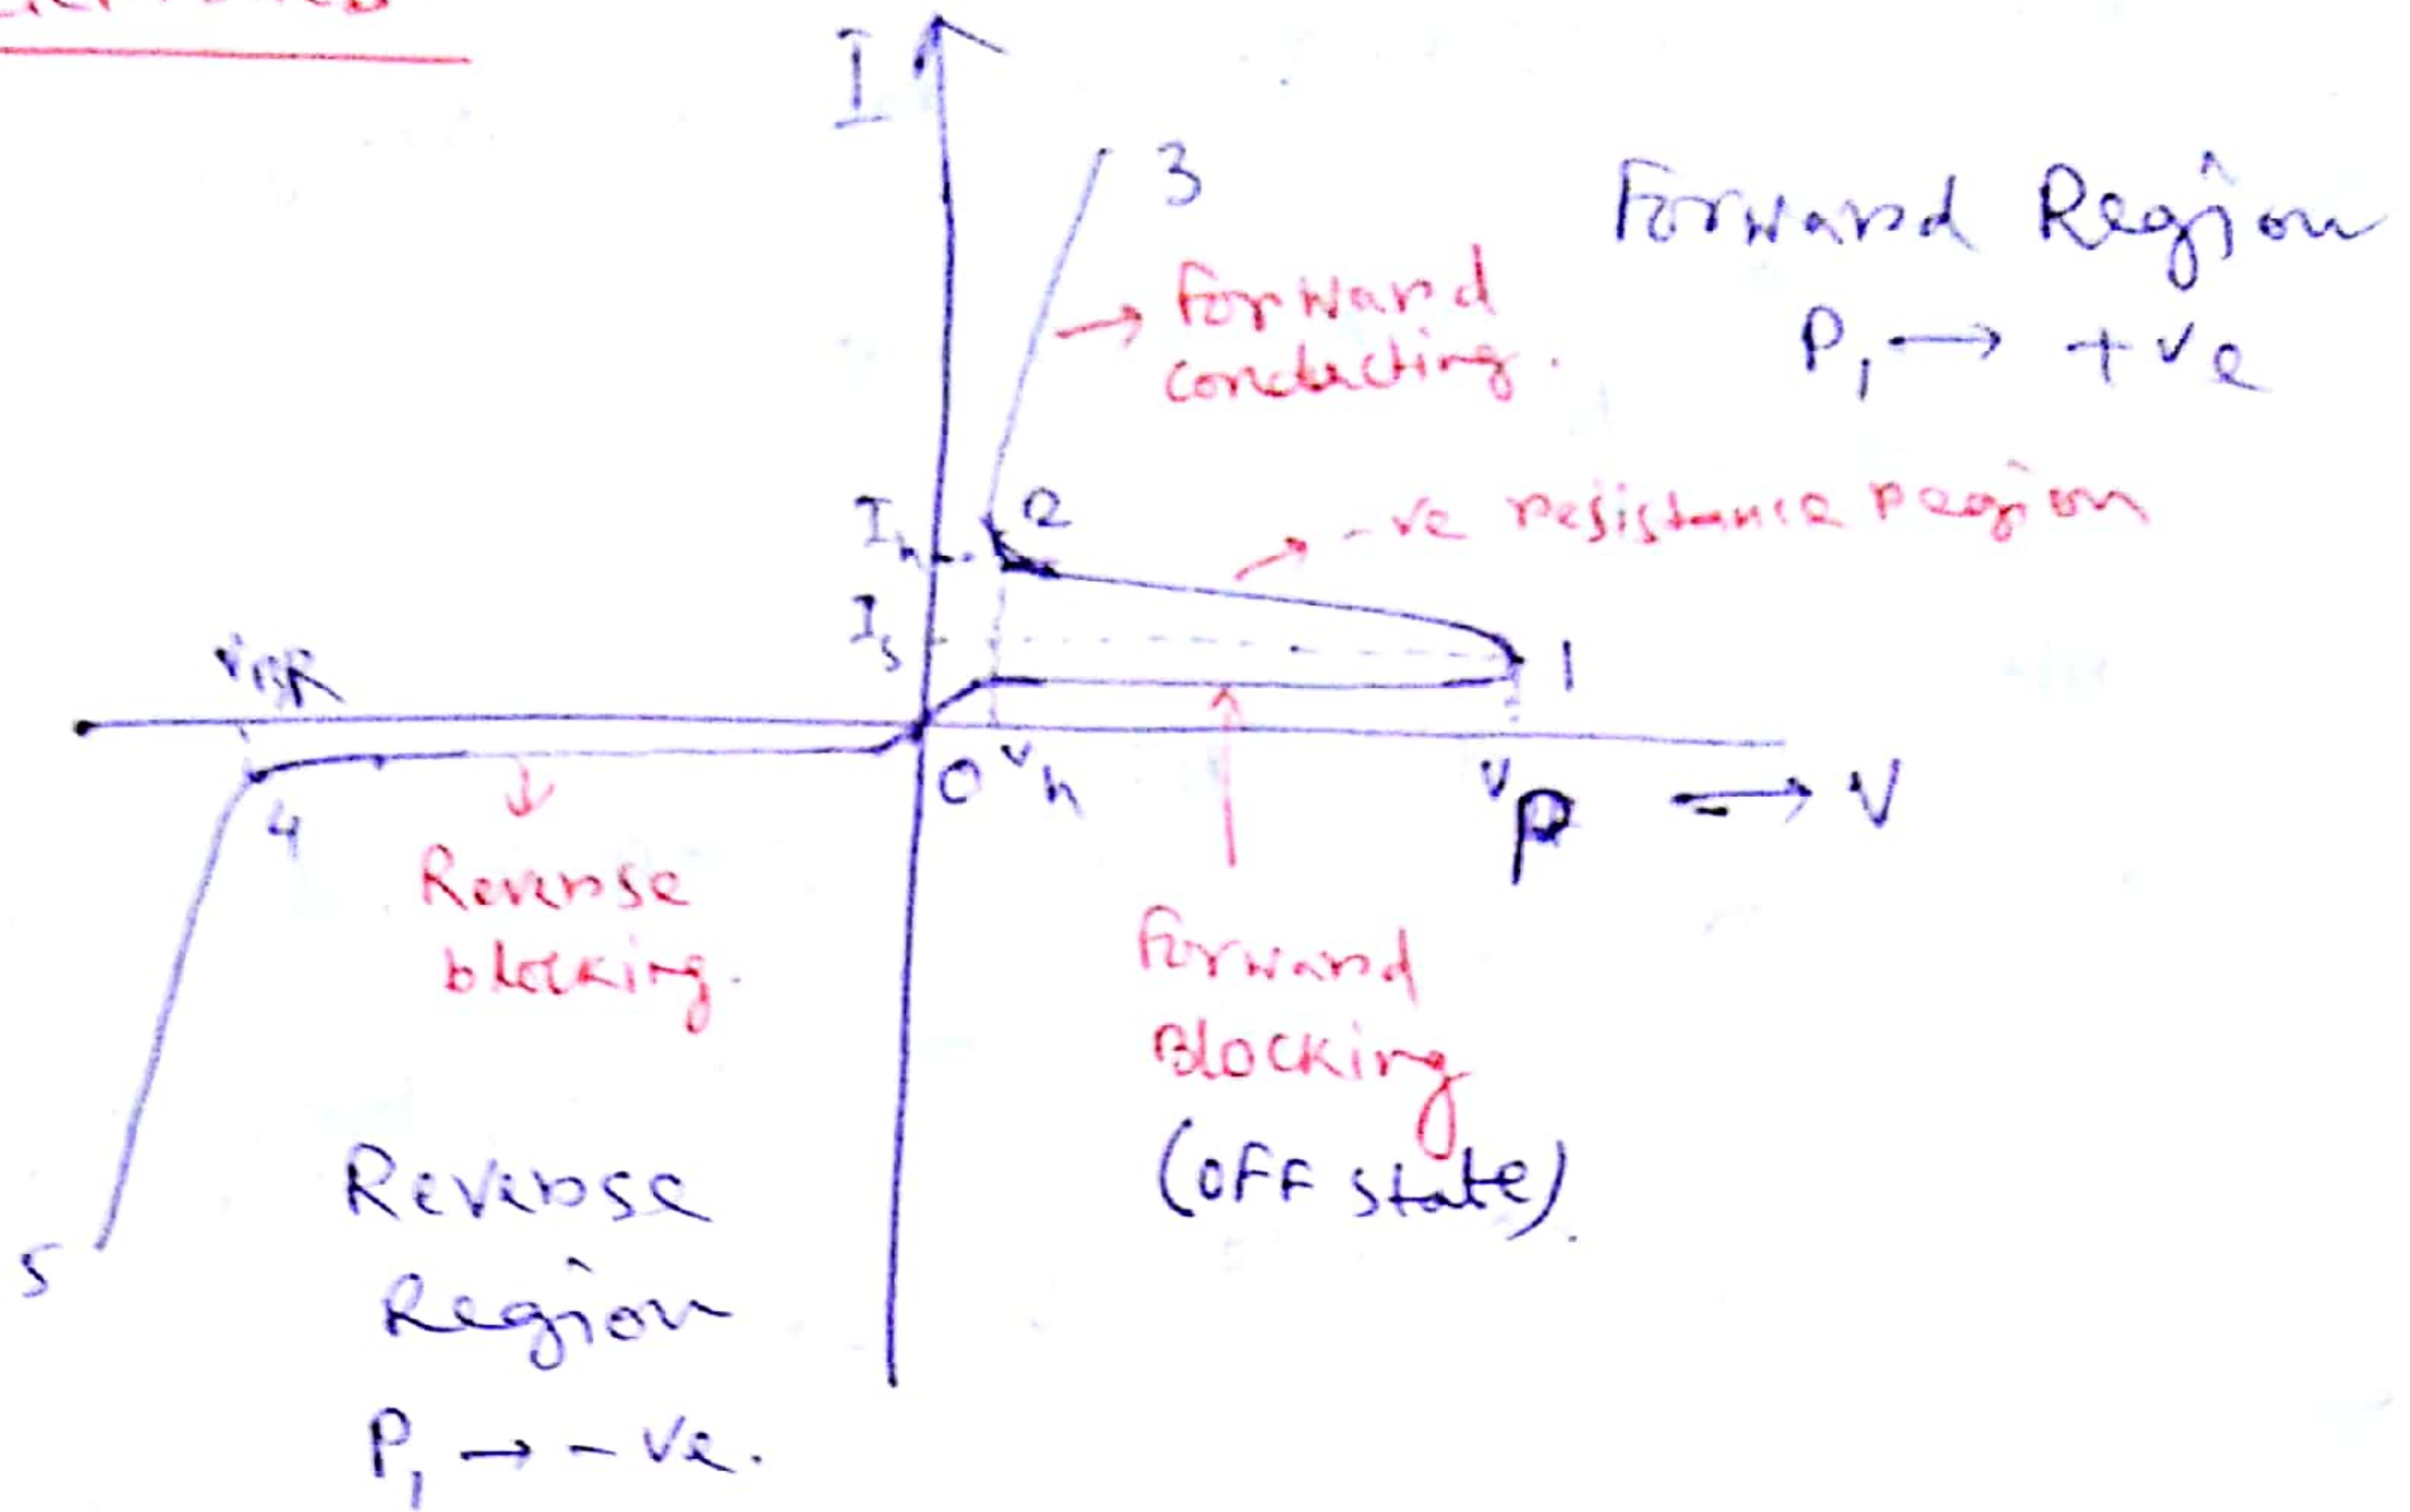 I
3
Forward Region
P₁ → +ve
→ Forward
conducting.
Iₕ
2
→ -ve resistance region
Iₛ
1
V_BR
0
Vₕ
V_P
→ V
4
Reverse
blocking.
Forward
Blocking
(OFF state).
5
Reverse
Region
P₁ → - ve.